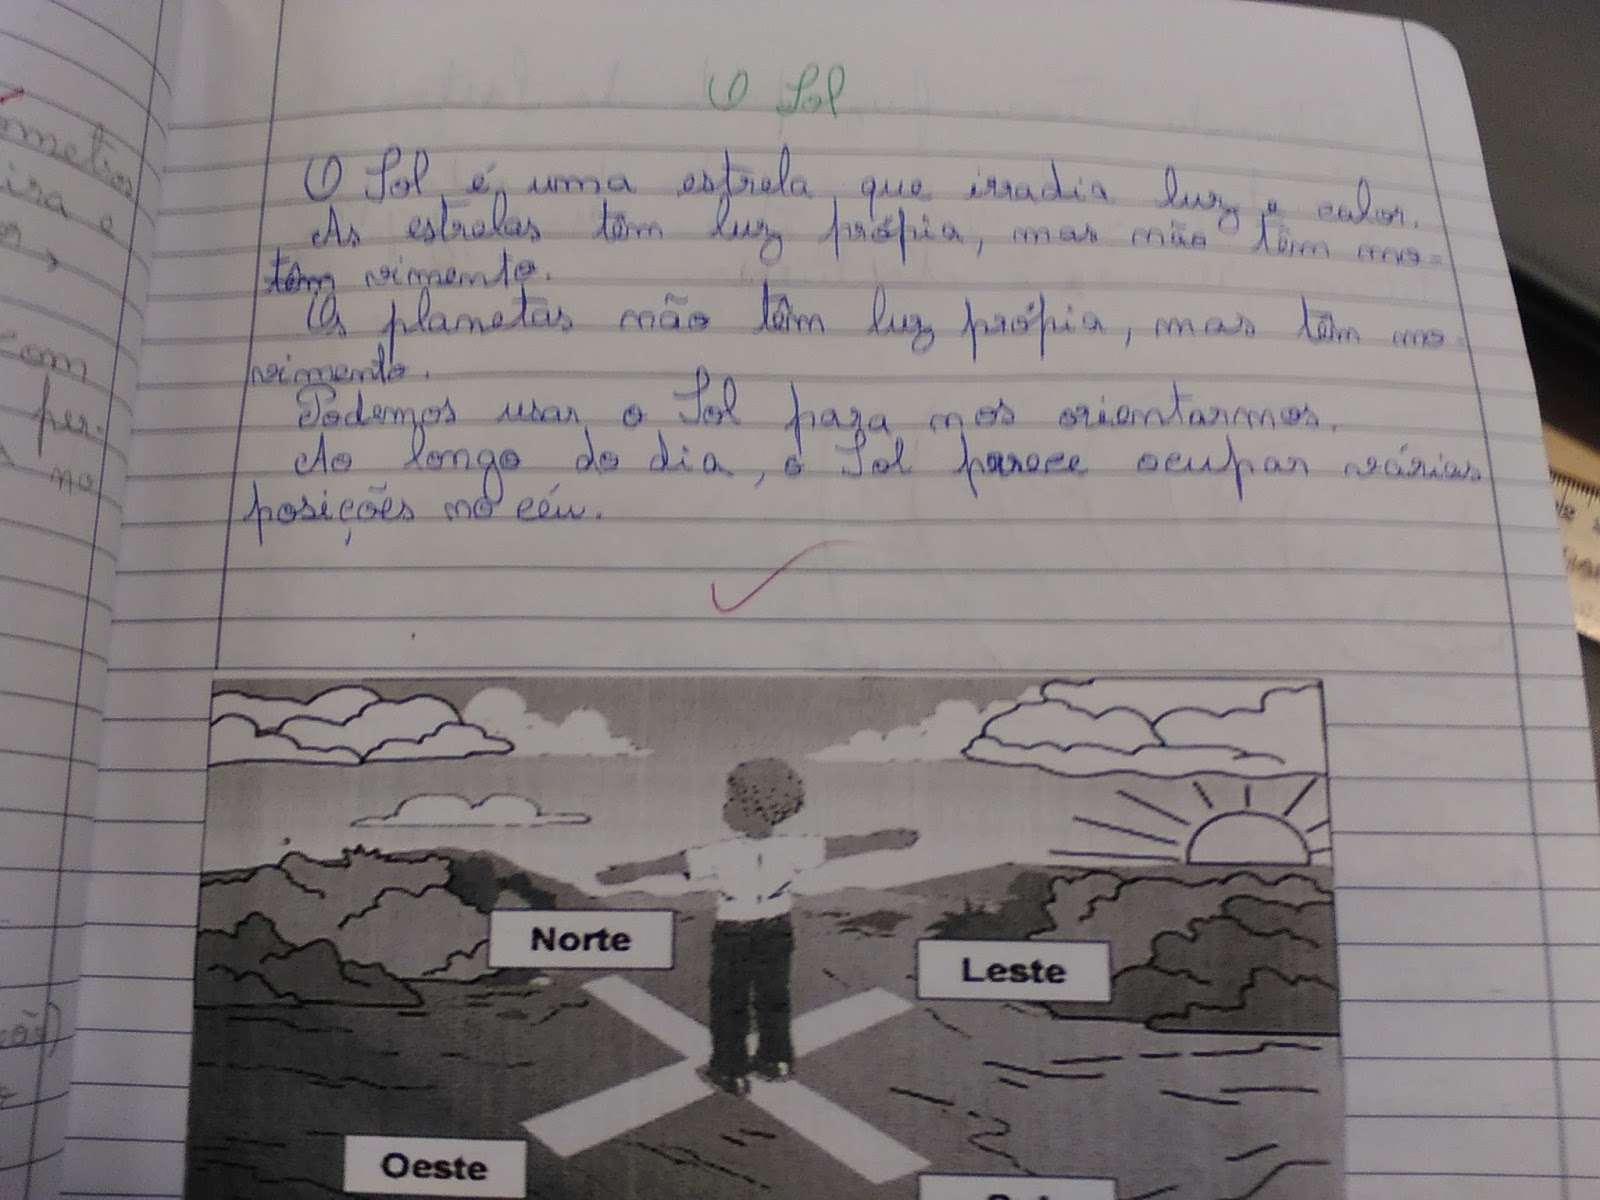 O Sol
O Sol é uma estrela que irradia luz e calor.
As estrelas têm luz própia, mas não têm mo-
têm vimento.
Os planetas não têm luz própia, mas têm mo-
vimento.
Podemos usar o Sol para nos orientarmos.
Ao longo do dia, o Sol parece ocupar várias
posições no céu.
Norte
Leste
Oeste
com
per-
no